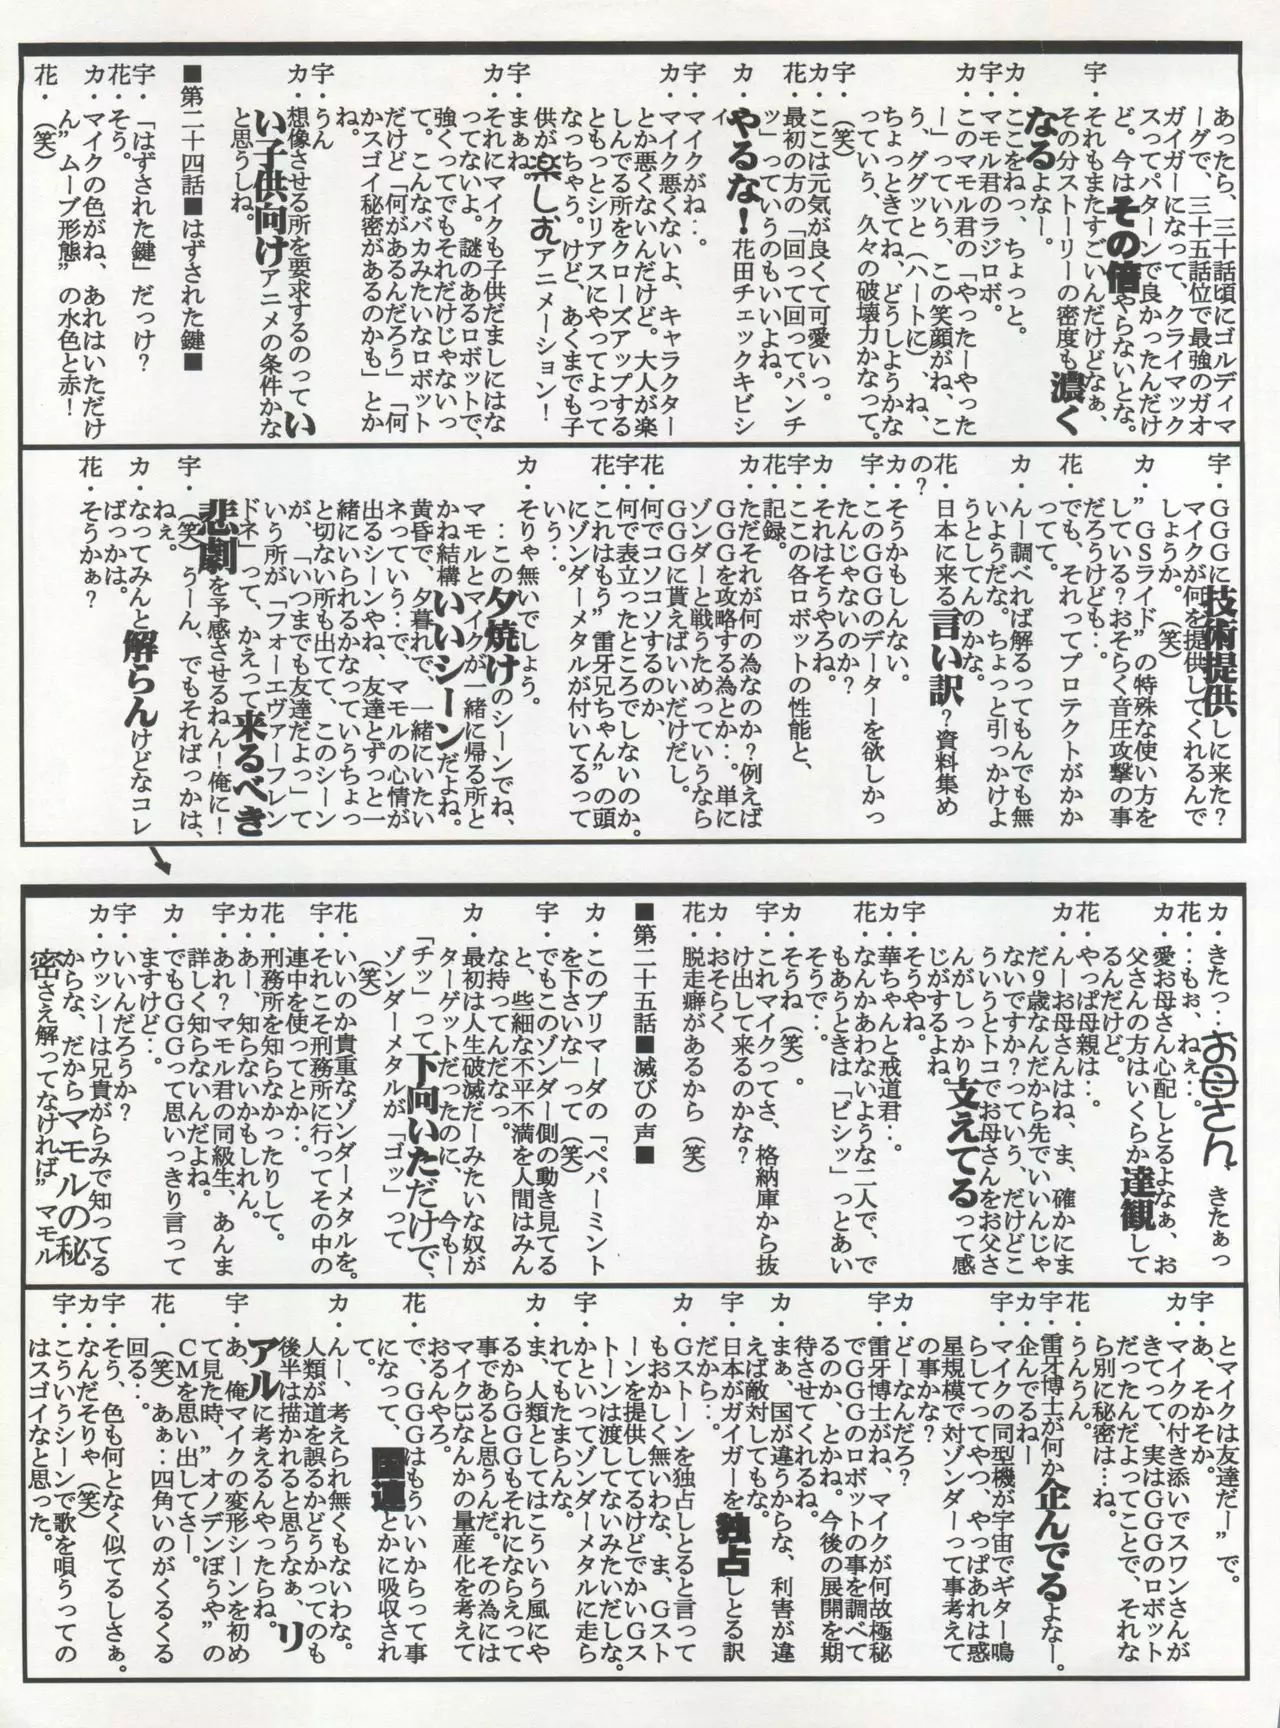 あったら、三十話頃にゴルディマ
ーグで、三十五話位で最強のガオ
ガイガーになって、クライマック
スってパターンで良かったんだけ
ど。今はその倍やらないとな。
宇・それもまたすごいんだけどなぁ、
その分ストーリーの密度も濃く
なるよなー。
カ・ここをねっ、ちょっと。
宇・マモル君のラジロボ。
カ・このマモル君の「やったーやった
ー」っていう、この笑顔がね、こ
う、ググッと（ハートに）ね、
ちょっときてね、どうしようかな
っていう、久々の破壊力かなって。
宇・（笑）
カ・ここは元気が良くて可愛いっ。
花・最初の方の「回って回ってパンチ
ッ」っていうのもいいよね。
カ・やるな！花田チェックキビシ
イ
宇・マイクがね‥。
カ・マイク悪くないよ、キャラクター
とか悪くないんだけど。大人が楽
しんでる所をクローズアップする
ともっとシリアスにやってよって
なっちゃう。けど、あくまでも子
供が楽しむアニメーション！
宇・まぁね。
カ・それにマイクも子供だましにはな
ってないよ。謎のあるロボットで、
強くってでもそれだけじゃないっ
て。こんなバカみたいなロボット
だけど「何があるんだろう」「何
かスゴイ秘密があるのかも」とか
ね。
宇・うん
カ・想像させる所を要求するのってい
い子供向けアニメの条件かな
と思うしね。
■第二十四話■はずされた鍵■
宇・「はずされた鍵」だっけ？
花・そう。
カ・マイクの色がね、あれはいただけ
ん”ムーブ形態”の水色と赤！
花・（笑）
宇・GGGに技術提供しに来た？
マイクが何を提供してくれるんで
しょうか。（笑）
カ・”GSライド”の特殊な使い方を
している？おそらく音圧攻撃の事
だろうけども‥。
花・でも、それってプロテクトがかか
ってて。
カ・んー調べれば解るってもんでも無
いようだな。ちょっと引っかけよ
うとしてんのかな。
花・日本に来る言い訳？資料集め
の？
カ・そうかもしんない。
宇・このGGGのデーターを欲しかっ
たんじゃないのか？
カ・それはそうやろね。
宇・ここの各ロボットの性能と、
花・記録。
カ・ただそれが何の為なのか？例えば
GGGを攻略する為とか‥。単に
ゾンダーと戦うためっていうなら
GGGに貰えばいいだけだし。
花・何でコソコソするのか、
宇・何で表立ったところでしないのか。
花・これはもう”雷牙兄ちゃん”の頭
にゾンダーメタルが付いてるって
いう‥。
カ・そりゃ無いでしょう。
‥この夕焼けのシーンでね、
マモルとマイクが一緒に帰る所と
かね結構いいシーンだよね。
黄昏で、夕暮れで、一緒にいたい
ネっていう‥で、マモルの心情が
出るシーンやね、友達とずっと一
緒にいられるかなっていうちょっ
と切ない所も出てて、このシーン
が、「いつまでも友達だよっ」て
いう所が「フォーエヴァーフレン
ドネ」って、かえって来るべき
悲劇を予感させるねん！俺に！
宇・（笑）うーん、でもそればっかは、
ねぇ。
カ・なってみんと解らんけどなコレ
ばっかは。
花・そうかぁ？
カ・きたっ‥お母さん、きたぁっ
花・‥もぉ、ねぇ‥。
カ・愛お母さん心配しとるよなぁ、お
父さんの方はいくらか達観して
るんだけど。
花・やっぱ母親は‥。
カ・んーお母さんはね、ま、確かにま
だ９歳なんだから先でいいんじゃ
ないですか？っていう、だけどこ
ういうとトコでお母さんをお父さ
んがしっかり支えてるって感
じがするよね。
宇・そうやね。
カ・華ちゃんと戒道君‥。
花・なんかあわないような二人で、で
もあうときは「ビシッ」っとあい
そうで‥。
カ・そうね（笑）。
宇・これマイクってさ、格納庫から抜
け出して来るのかな？
カ・おそらく
花・脱走癖があるから（笑）
■第二十五話■滅びの声■
カ・このプリマーダの「ペパーミント
を下さいな」って（笑）
宇・でもこのゾンダー側の動き見てる
と、些細な不平不満を人間はみん
な持ってんだなっ。
カ・最初は人生破滅だーみたいな奴が
ターゲットだったのに、今もー
「チッ」って下向いただけで、
ゾンダーメタルが「ゴッ」って
（笑）
花・いいのか貴重なゾンダーメタルを。
宇・それこそ刑務所に行ってその中の
連中を使ってとか‥。
花・刑務所を知らなかったりして。
カ・あー、知らないかもしれん。
宇・あれ？マモル君の同級生、あんま
詳しく知らないんだよね。
カ・でもGGGって思いっきり言って
ますけど‥。
宇・いいんだろうか？
カ・ウッシーは兄貴がらみで知ってる
からな、だからマモルの秘
密さえ解ってなければ”マモル
とマイクは友達だー”で。
宇・あ、そかそか。
カ・マイクの付き添いでスワンさんが
きてって、実はGGGのロボット
だったんだよってことで、それな
ら別に秘密は‥ね。
花・うんうん。
宇・雷牙博士が何か企んでるよなー。
カ・企んでるねー
宇・マイクの同型機が宇宙でギター鳴
らしてってやつ、やっぱあれは惑
星規模で対ゾンダーって事考えて
の事かな？
カ・どーなんだろ？
宇・雷牙博士がね、マイクが何故極秘
でGGGのロボットの事を調べて
るのか、とかね。今後の展開を期
待させてくれるね。
カ・まぁ、国が違うからな、利害が違
えば敵対してもな。
宇・日本がガイガーを独占しとる訳
だから‥。
カ・Gストーンを独占しとると言って
もおかしく無いわな、ま、Gスト
ーンを提供してるけどでかいGス
トーンは渡してないみたいだしな。
宇・かといってゾンダーメタルに走ら
れてもたまらんな。
カ・ま、人類としてはこういう風にや
るからGGGもそれにならえって
事であると思うんだ。その為には
マイク13なんかの量産化を考えて
おるんやろ。
花・で、GGGはもういいからって事
になって、国連とかに吸収され
て。
カ・んー、考えられ無くもないわな。
人類が道を誤るかどうかってのも
後半は描かれると思うなぁ、リ
アルに考えるんやったらね。
宇・あ、俺マイクの変形シーンを初め
て見た時、”オノデンぼうや”の
CMを思い出してさー。
花・（笑）あぁ‥四角いのがくるくる
回る‥。
宇・そう、色も何となく似てるしさぁ。
カ・なんだそりゃ（笑）
宇・こういうシーンで歌を唄うっての
はスゴイなと思った。